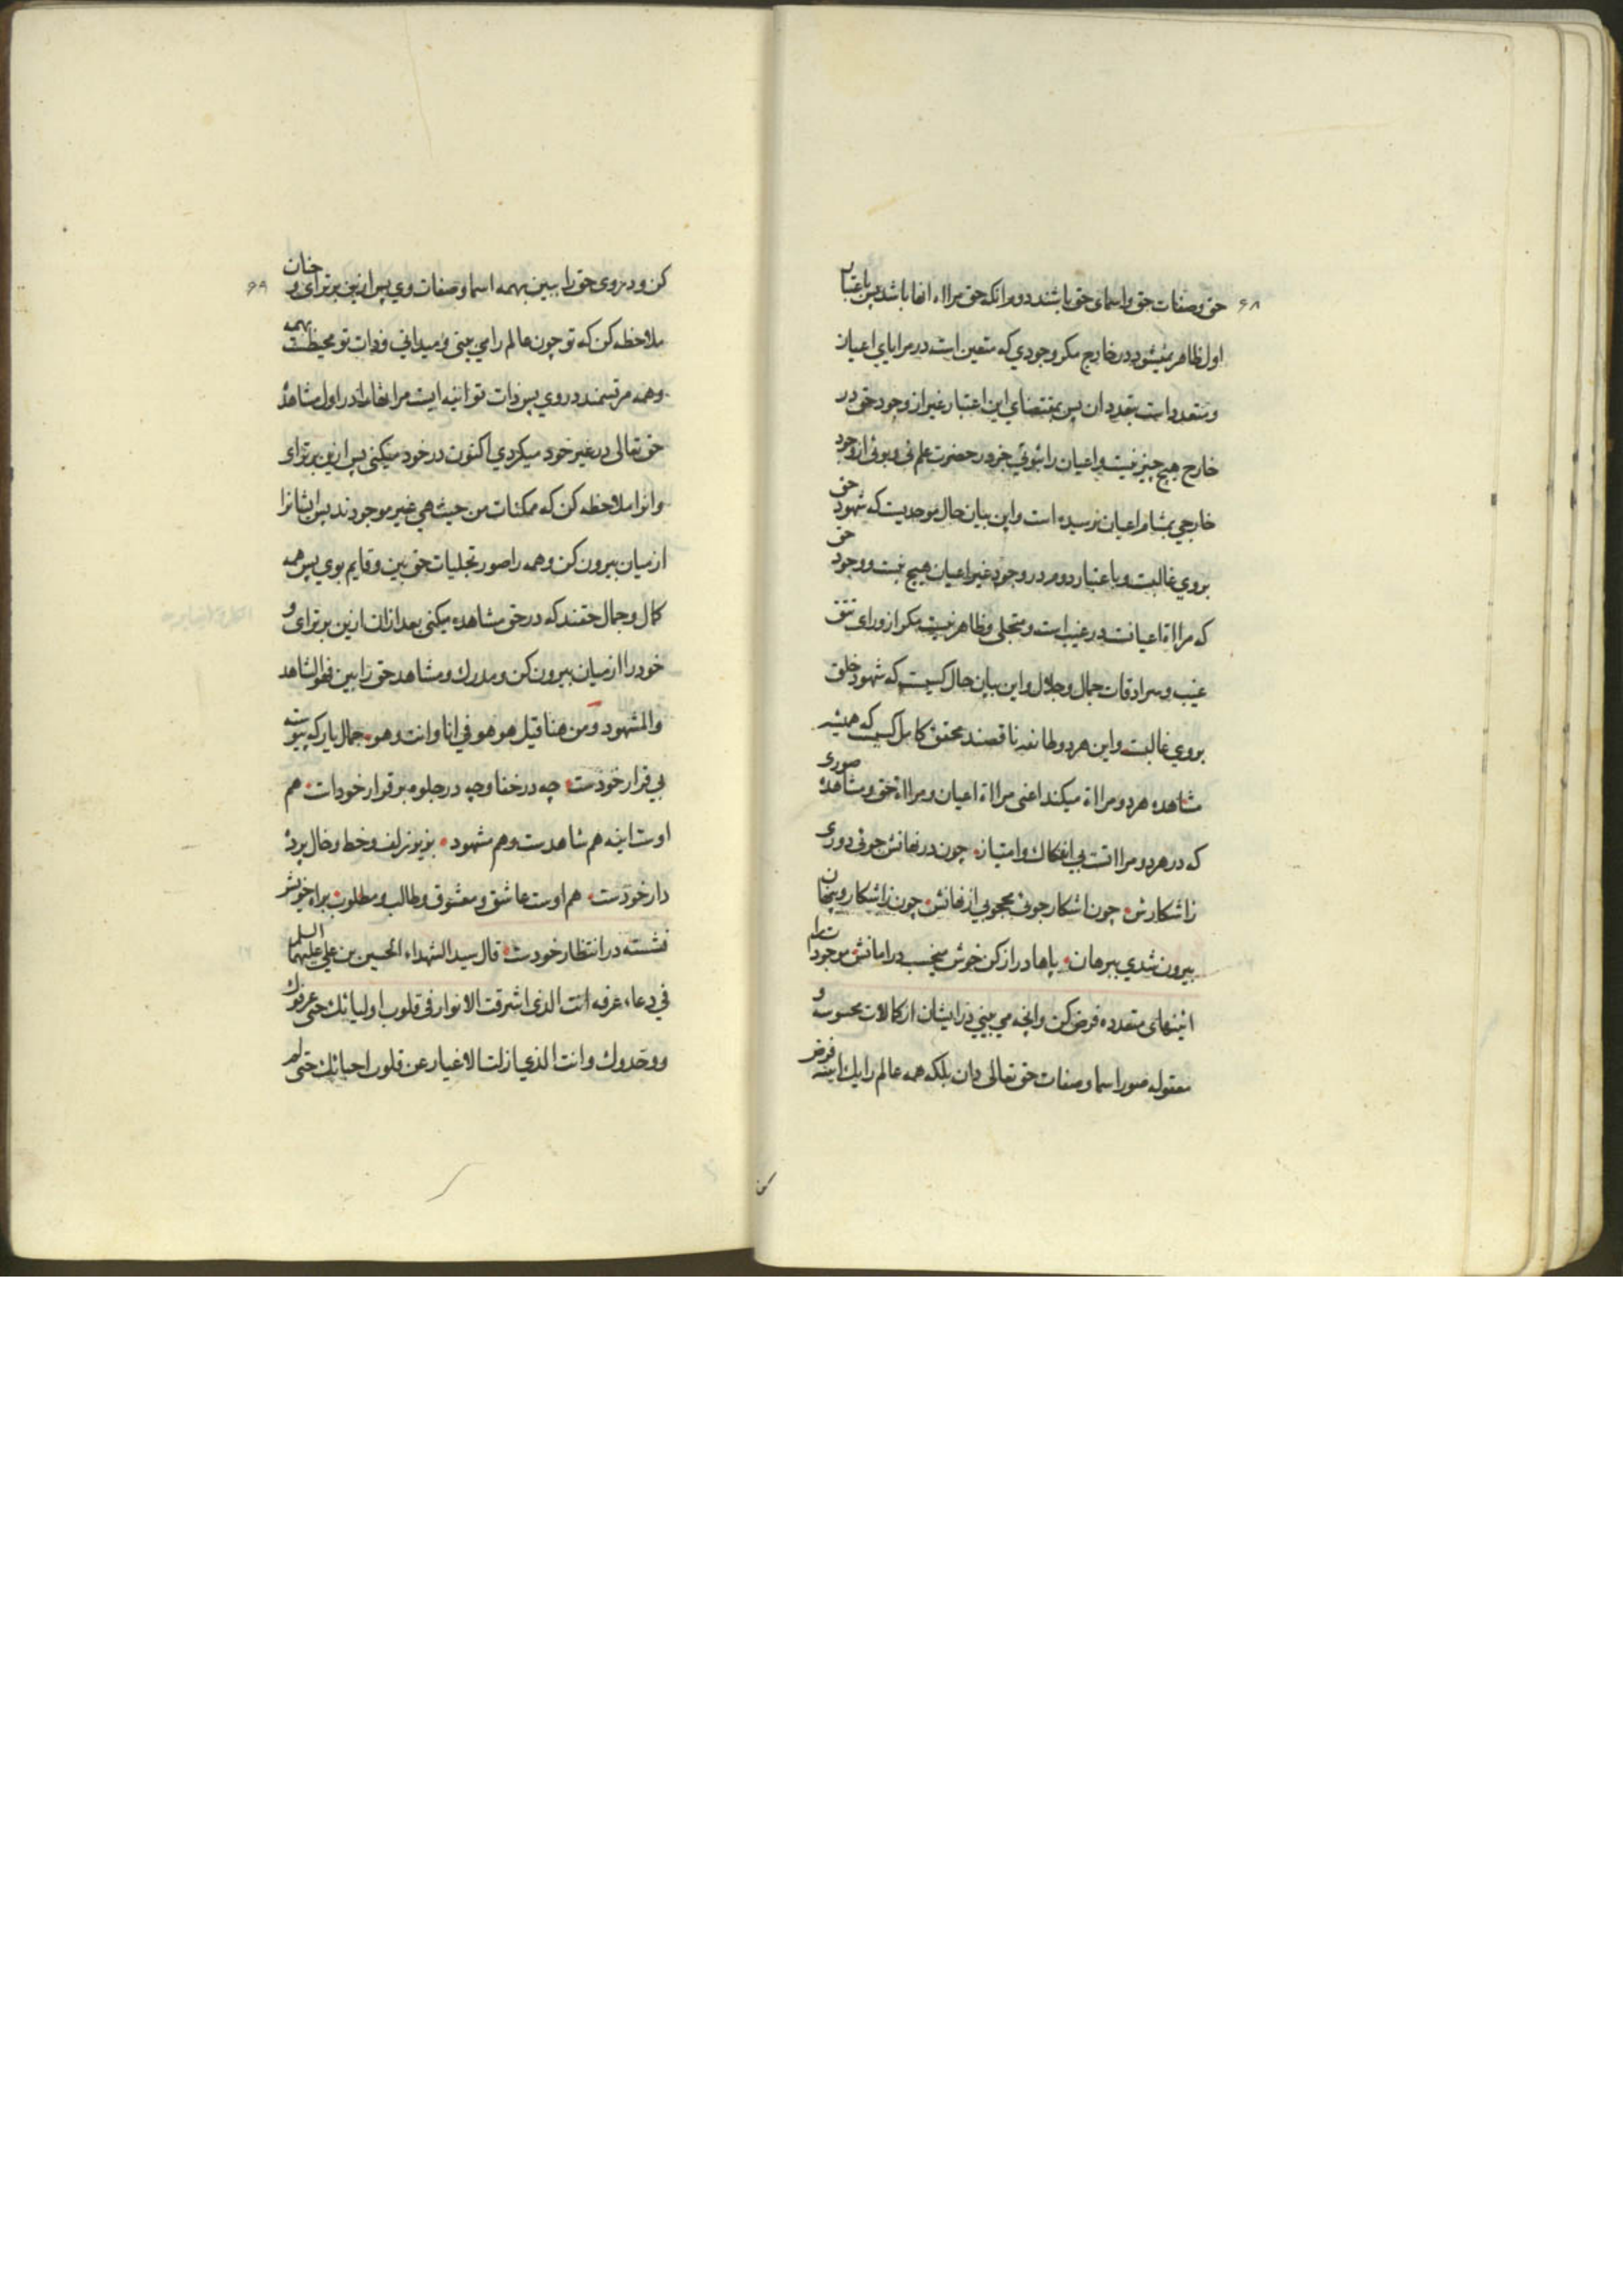 ۶۸
حق و صفات حق و اسمای حق باشند دوم انکه حق مرااة انها باشد پس باعتبار
اول ظاهر نمیشود در خارج مکر وجودی که متعین است در مرایای اعیان
و متعدد است بتعدد ان پس بمقتضای این اعتبار غیر از وجود حق در
خارج هیچ چیز نیست و اعیان را ثبوتی جز در حضرت علم نی و بوئی از وجود
خارجی بمشام اعیان نرسیده است و این بیان حال موحدیست که شهود حق
بروی غالبست و باعتبار دوم در وجود غیر اعیان هیچ نیست و وجود حق
که مرااة اعیانست در غیب است و متجلی و ظاهر نیست مکر از ورای تتق
غیب و سرادقات جمال و جلال و این بیان حال کسیست که شهود خلق
بروی غالبست و این هر دو طائفه ناقصند محقق کامل کسیست که همیشه
مشاهده هر دو مرااة میکند اعنی مرااة اعیان و مرااة حق و مشاهدهٔ صوری
که در هر دو مرااتست بی انفکاك و امتیاز۰ چون در نهانش جوئی دوری
زاشکارش۰ چون اشکار جوئی محجوبی از نهانش۰ چون زاشکار و پنهان
بیرون شدی ببرهان۰ پاها دراز کن خوش میخسب در امانش۰ موجودات را
ائینهای متعدده فرض کن وانچه می بینی در ایشان از کمالات محسوسه و
معقوله صور اسما و صفات حق تعالی دان بلکه همه عالم را یك اینه فرض
۶۹
کن و در وی حق را ببین بهمه اسما و صفات وی پس ازین برتر ای و چنان
ملاحظه کن که تو چون عالم را می بینی و میدانی و ذات تو محیطست بهمه
و همه مرتسمند در وی پس ذات تو ائینه ایست مر انها را در اول مشاهدهٔ
حق تعالی در غیر خود میکردی اکنون در خود میکنی پس ازین برتر ای
وانرا ملاحظه کن که ممکنات من حیث هی غیر موجودند پس ایشانرا
از میان بیرون کن و همه را صور تجلیات حق بین و قایم بوی پس همه
کمال و جمال حقند که در حق مشاهده میکنی بعد از ان ازین برتر ای و
خود را از میان بیرون کن و مدرك و مشاهد حق را بین فهو الشاهد
والمشهود و من هنا قیل هو هو فی انا وانت و هو۰ جمال یار که پیوسته
بی قرار خودست۰ چه در خفا و چه در جلوه بر قرار خودات۰ هم
اوست اینه هم شاهدست و هم مشهود۰ بزیر زلف و خط و خال پردهٔ
دار خودست۰ هم اوست عاشق و معشوق و طالب و مطلوب۰ براه خویش
نشسته در انتظار خودست۰ قال سید الشهداء الحسین بن علی علیهما السلم
فی دعاء عرفه انت الذی اشرقت الانوار فی قلوب اولیائك حتی عرفوك
ووحدوك وانت الذی ازلت الاغیار عن قلوب احبائك حتی لم